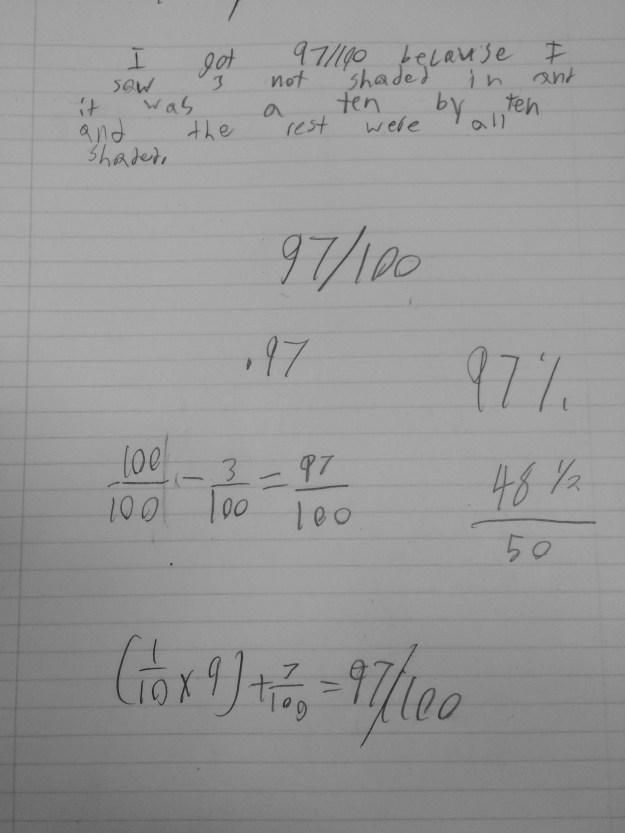 I got 97/100 because I
saw 3 not shaded in and
it was a ten by ten
and the rest were all
shaded.
97/100
.97
97%
100/100 - 3/100 = 97/100
48 1/2 / 50
(1/10 x 9) + 7/100 = 97/100